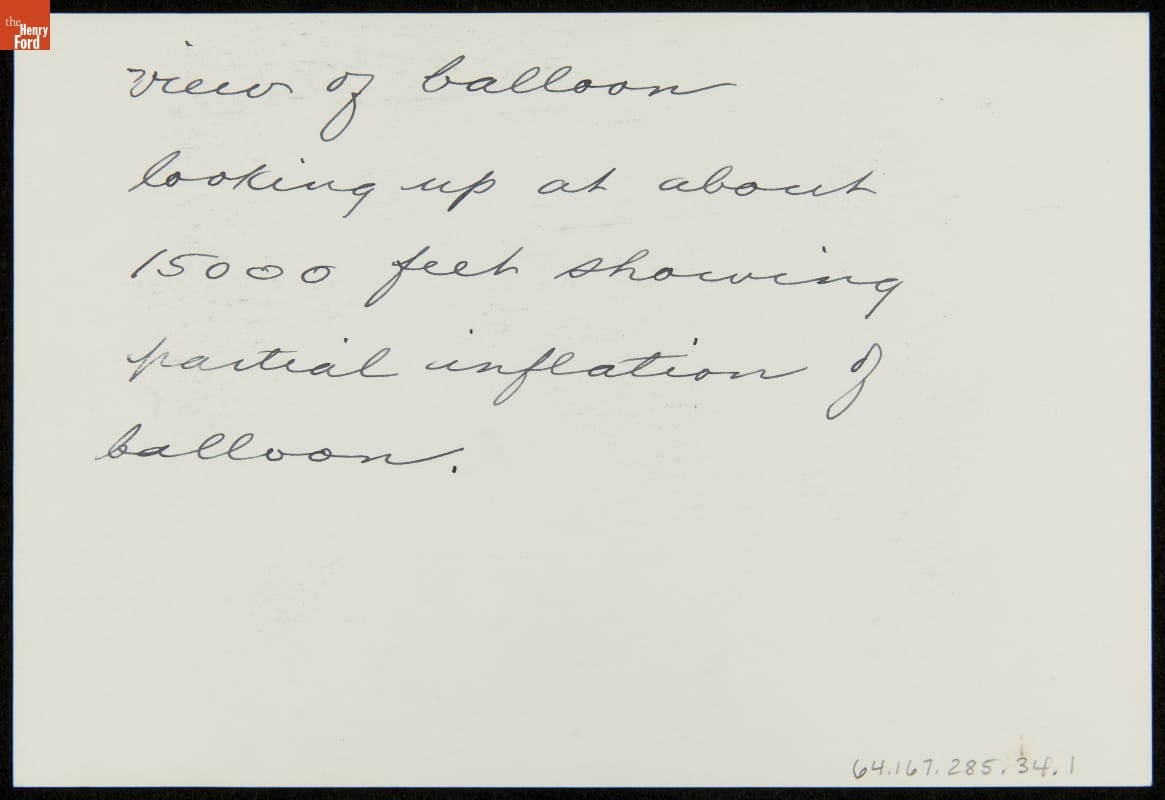 the
Henry
Ford
view of balloon
looking up at about
15000 feet showing
partial inflation of
balloon.
64.167.285.34.1